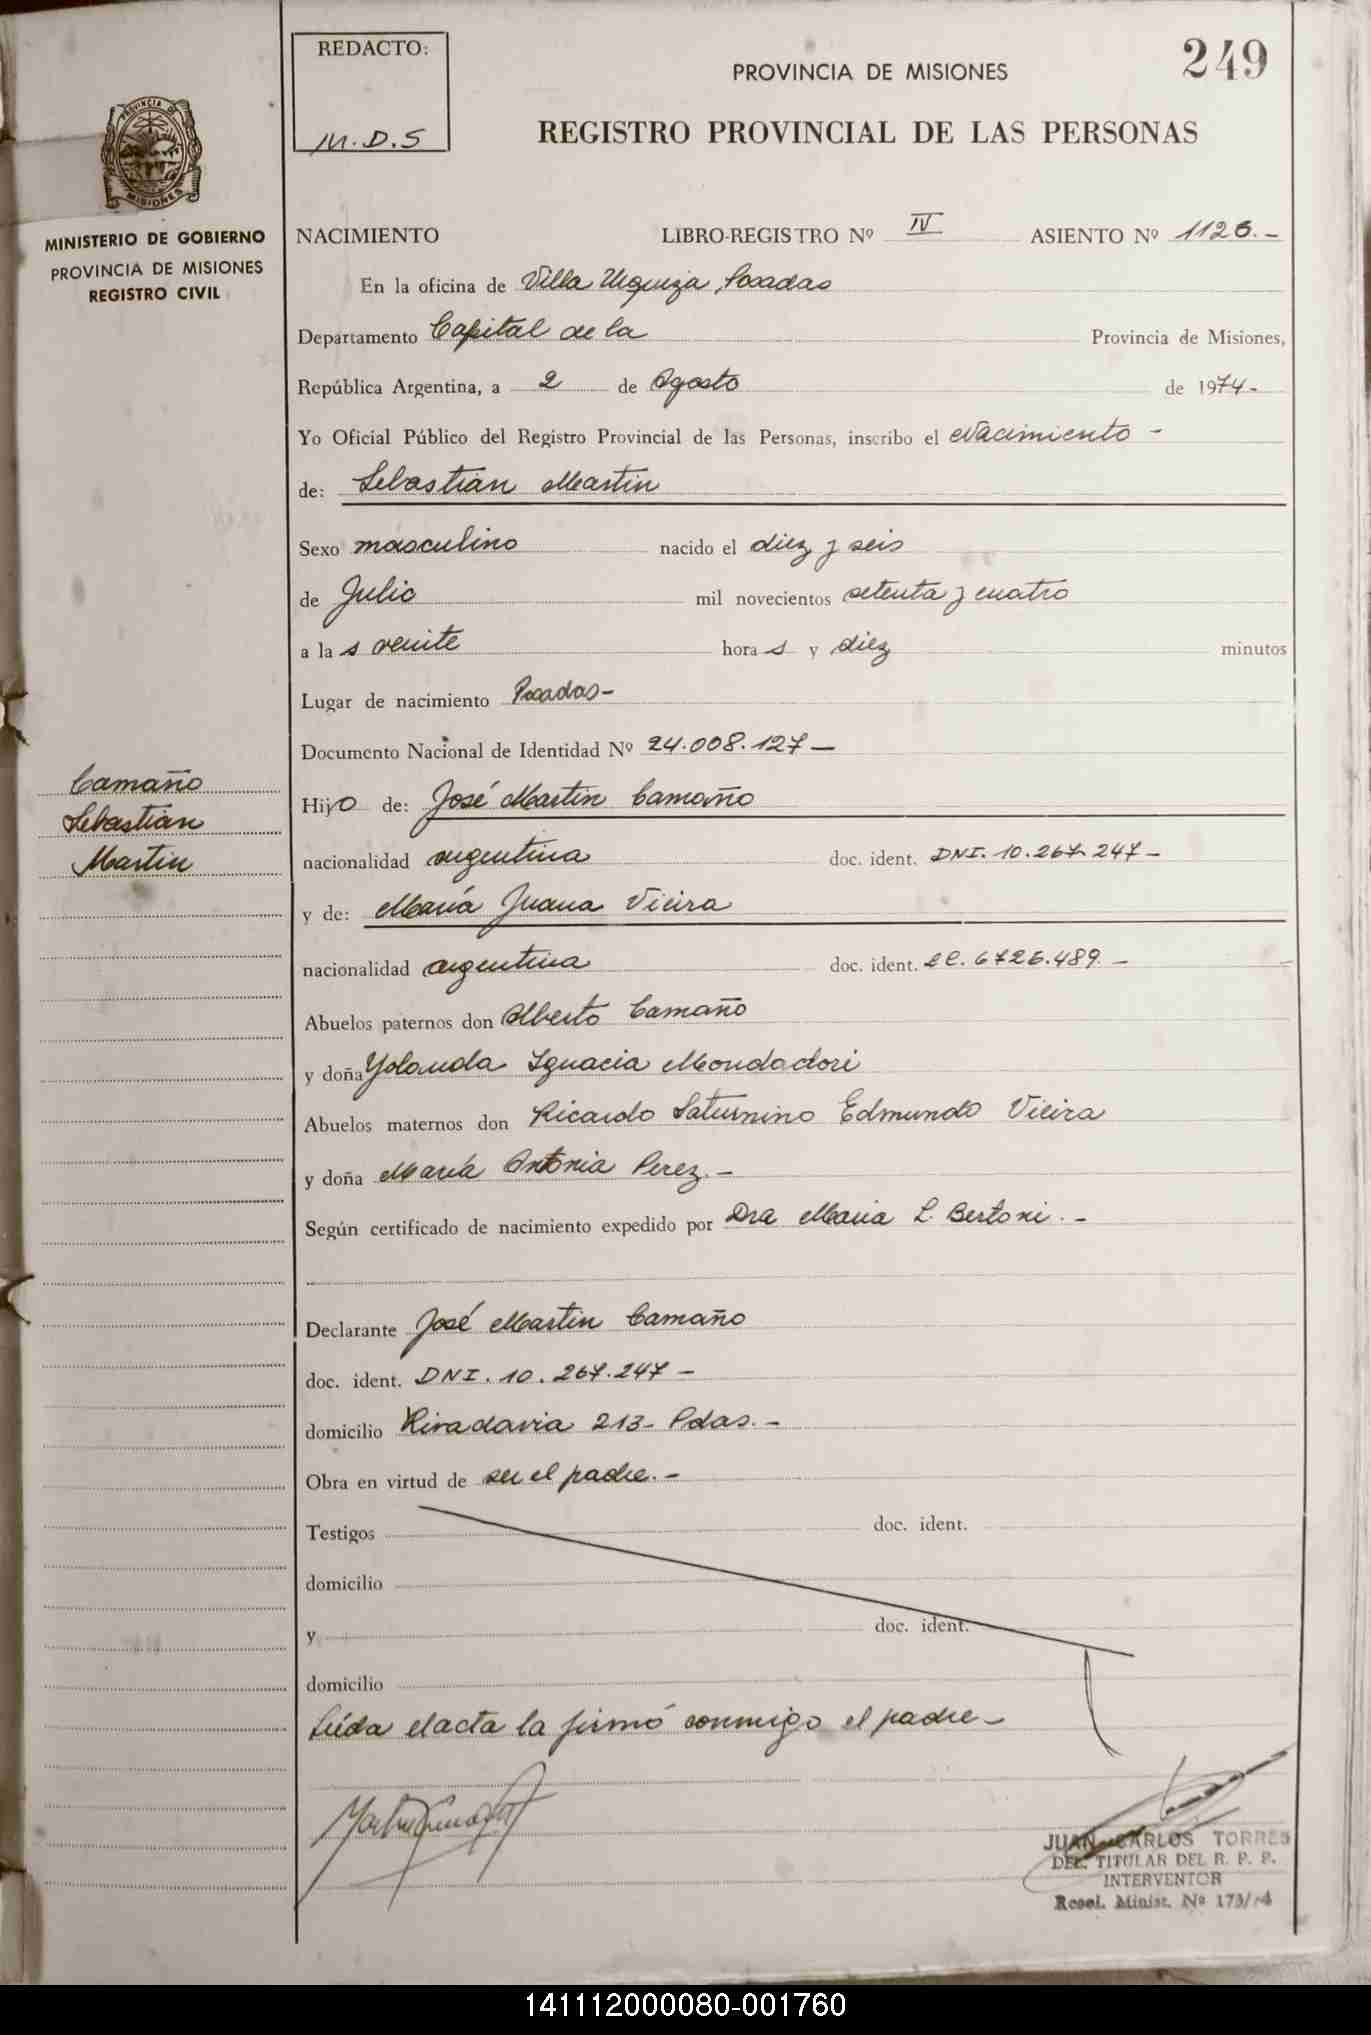 REDACTO:
M.D.S
249
PROVINCIA DE MISIONES
REGISTRO PROVINCIAL DE LAS PERSONAS
PROVINCIA DE
MISIONES
MINISTERIO DE GOBIERNO
PROVINCIA DE MISIONES
REGISTRO CIVIL
NACIMIENTO LIBRO-REGISTRO Nº IV ASIENTO Nº 1126.-
En la oficina de Villa Urquiza, Posadas
Departamento Capital de la Provincia de Misiones,
República Argentina, a 2 de Agosto de 1974-
Yo Oficial Público del Registro Provincial de las Personas, inscribo el Nacimiento -
de: Sebastián Martin
Sexo masculino nacido el diez y seis
de Julio mil novecientos setenta y cuatro
a la s veinte hora s y diez minutos
Lugar de nacimiento Posadas-
Documento Nacional de Identidad Nº 24.008.127-
Camaño
Sebastián
Martin
Hijo de: José Martin Camaño
nacionalidad argentina doc. ident. DNI. 10.267.247-
y de: María Juana Vieira
nacionalidad argentina doc. ident. LC. 6726.489. -
Abuelos paternos don Alberto Camaño
y doña Yolanda Ignacia Mondadori
Abuelos maternos don Ricardo Saturnino Edmundo Vieira
y doña María Antonia Perez.-
Según certificado de nacimiento expedido por Dra Maria L. Bertoni. -
Declarante José Martin Camaño
doc. ident. DNI. 10.267.247 -
domicilio Rivadavia 213- Pdas.-
Obra en virtud de ser el padre.-
Testigos doc. ident.
domicilio
y doc. ident.
domicilio
Leída el acta la firmó conmigo el padre-
JUAN CARLOS TORRES
DEL. TITULAR DEL R. P. P.
INTERVENTOR
Resol. Minist. Nº 173/74
141112000080-001760